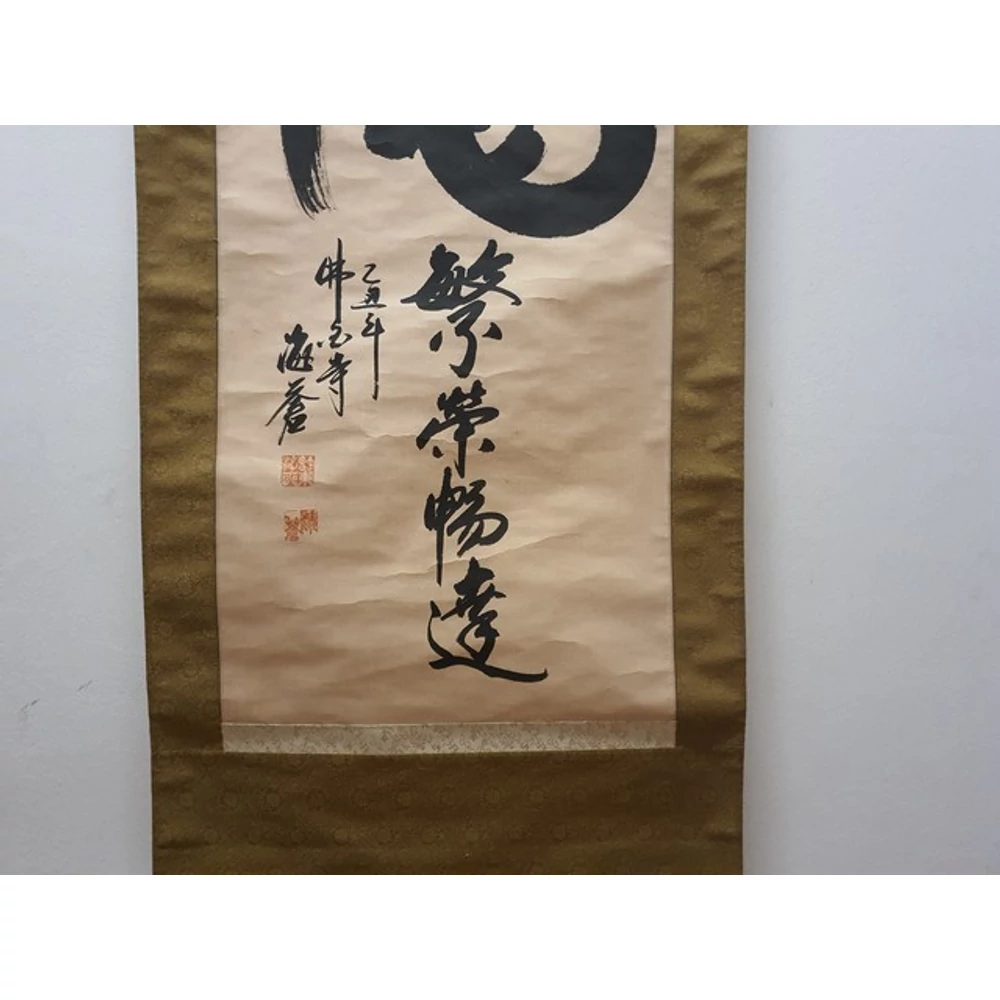 繁榮暢達
乙丑年
佛国寺
海蒼